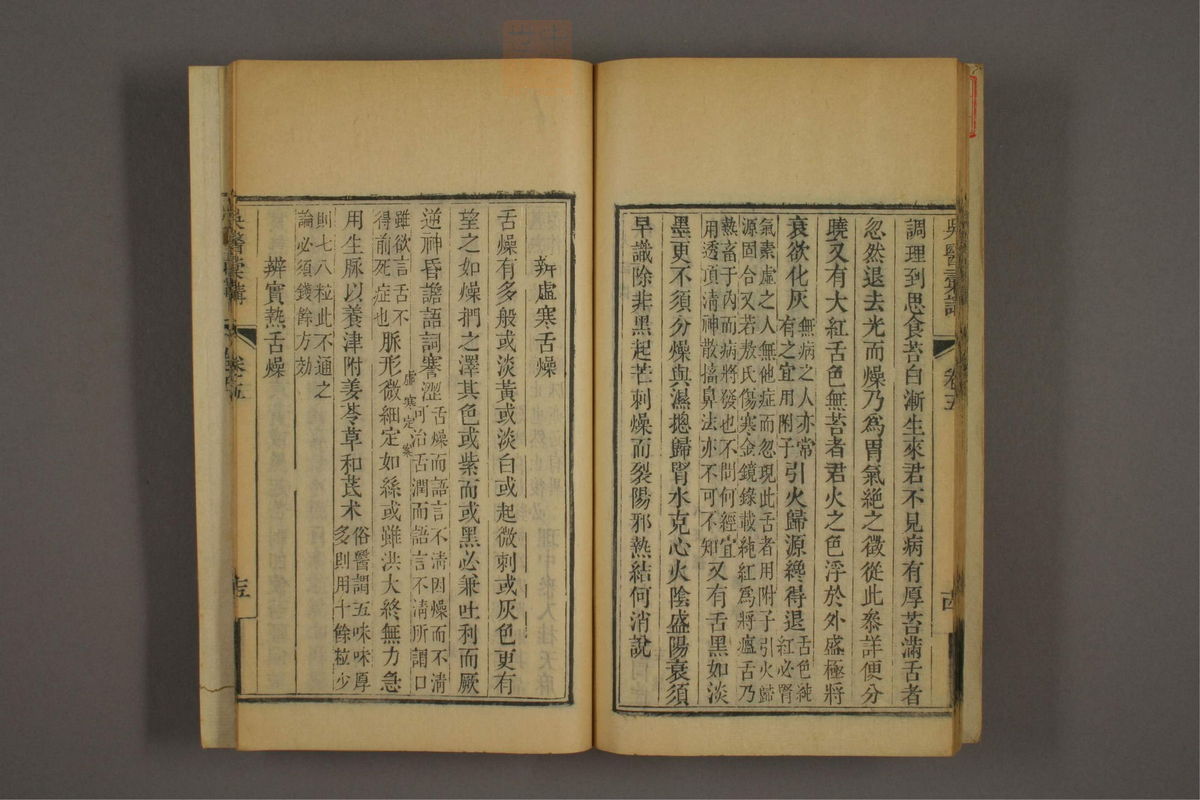 調理到思食苔白漸生來君不見病有厚苔滿舌者
忽然退去光而燥乃爲胃氣絶之徵從此叅詳便分
曉又有大紅舌色無苔者君火之色浮於外盛極將
衰欲化灰無病之人亦常有之宜用附子引火歸源纔得退舌色純紅必腎
氣素虛之人無他症而忽現此舌者用附子引火歸
源固合又若敖氏傷寒金鏡錄載純紅爲將瘟舌乃
熱畜于內而病將發也不問何經宜
用透項淸神散搐鼻法亦不可不知又有舌黑如淡
墨更不須分燥與濕摠歸腎水克心火陰盛陽衰須
早識除非黑起芒刺燥而裂陽邪熱結何消說
吳醫彙講
卷五
辨虛寒舌燥
舌燥有多般或淡黃或淡白或起微刺或灰色更有
望之如燥捫之澤其色或紫而或黑必兼吐利而厥
逆神昏譫語詞蹇澀舌燥而語言不淸因燥而不淸可治舌潤而語言不淸所謂口
雖欲言舌不
得前死症也脈形微細定如絲或雖洪大終無力急
虛寒定案
用生脈以養津附姜苓草和芪朮俗醫謂五味味厚多則用十餘粒少
則七八粒此不通之
論必須錢餘方効
辨實熱舌燥
吳醫彙講
卷五